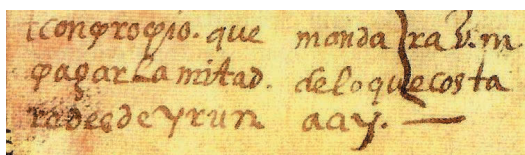 con propio. que mandara v. m.
pagar la mitad. de lo que costa
ra desde yrun aay.